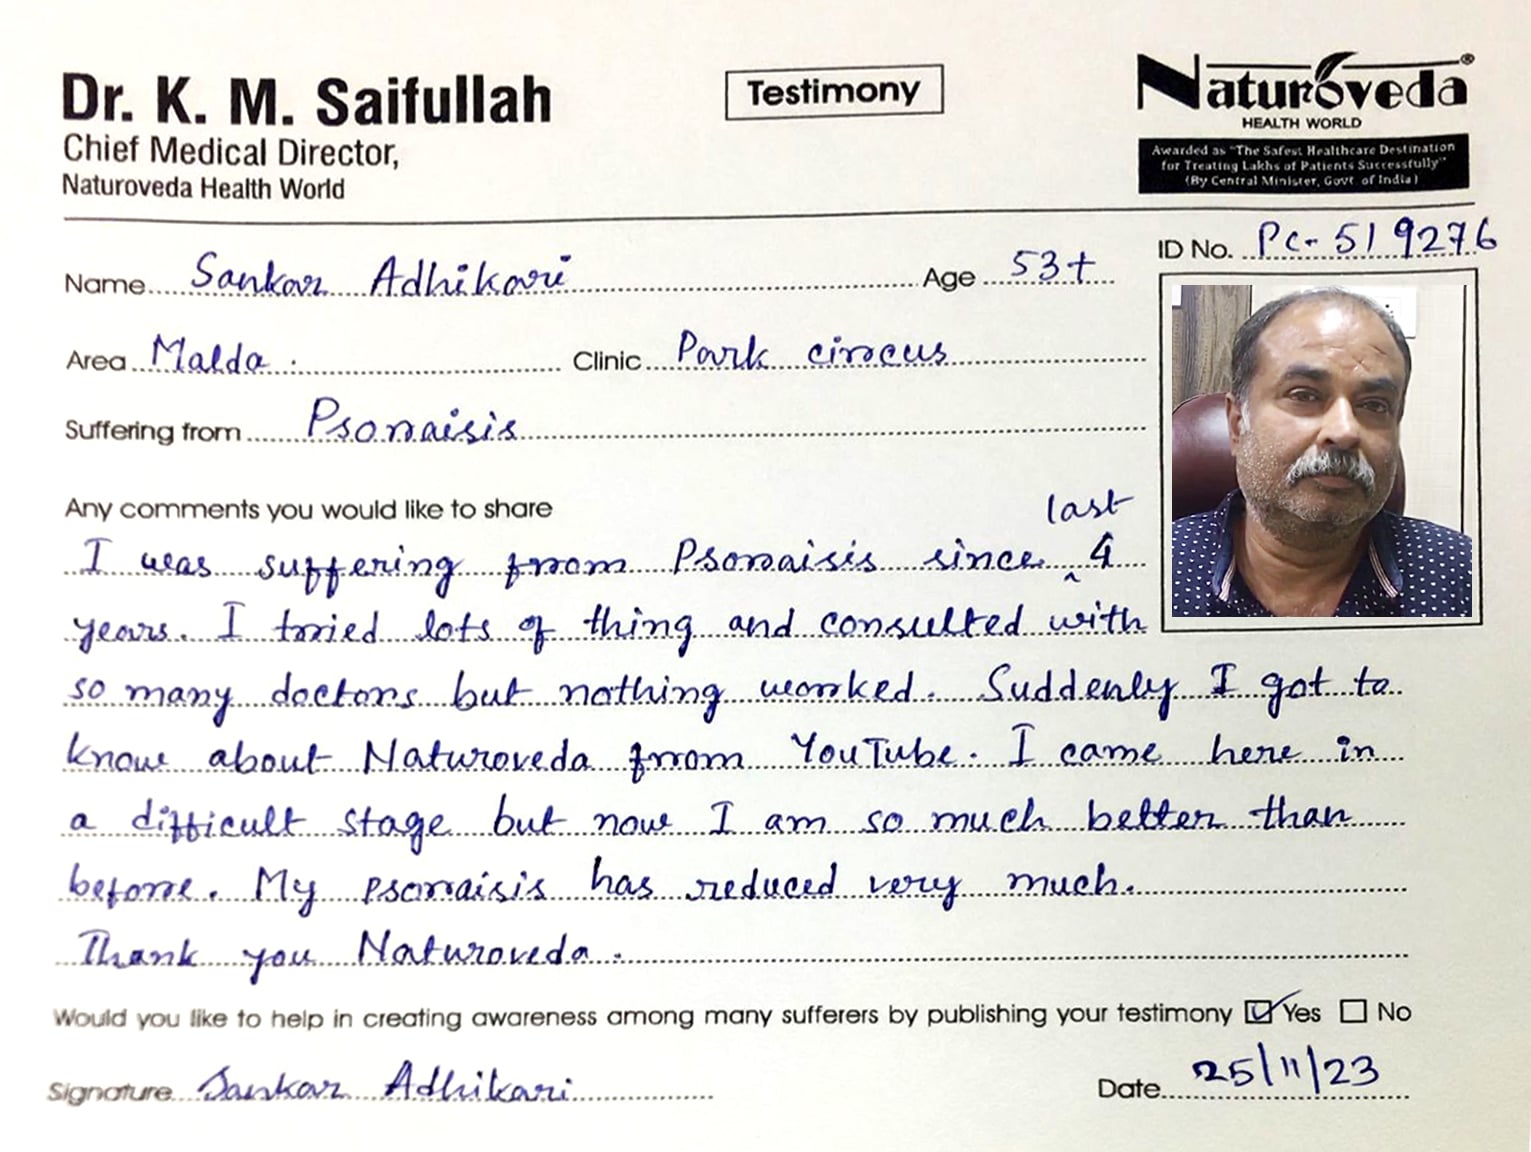 Dr. K. M. Saifullah
Chief Medical Director,
Naturoveda Health World
Testimony
Naturoveda®
HEALTH WORLD
Awarded as "The Safest Healthcare Destination
for Treating Lakhs of Patients Successfully"
(By Central Minister, Govt of India)
ID No. PC-519276
Name Sankar Adhikari Age 53+
Area Malda. Clinic Park circus
Suffering from Psoraisis
Any comments you would like to share
last
I was suffering from Psoraisis since ^ 4
years. I tried lots of thing and consulted with
so many doctors but nothing worked. Suddenly I got to
know about Naturoveda from YouTube. I came here in
a difficult stage but now I am so much better than
before. My psoraisis has reduced very much.
Thank you Naturoveda.
Would you like to help in creating awareness among many sufferers by publishing your testimony ☑ Yes ☐ No
Signature Sankar Adhikari Date 25/11/23